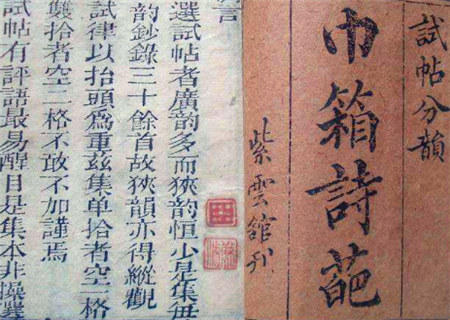 試帖分韻
巾箱詩葩
紫雲舘刋
選試帖者廣韵多而狹韵恒少是集每
韵鈔錄三十餘首故狹韵亦得縱觀
試律以抬頭爲重茲集单抬者空一格
雙抬者空二格不敢不加謹焉
試帖有評語最易醒目是集本非操選